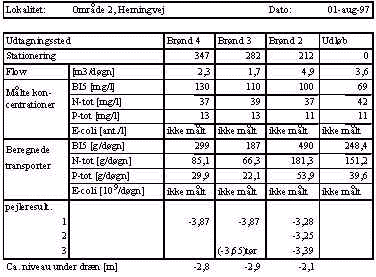 Lokalitet: Område 2, Herningvej Dato: 01-aug-97
Udtagningssted Brønd 4 Brønd 3 Brønd 2 Udløb
Stationering 347 282 212 0
Flow [m3/døgn] 2,3 1,7 4,9 3,6
Målte kon- BI5 [mg/l] 130 110 100 69
centrationer N-tot [mg/l] 37 39 37 42
P-tot [mg/l] 13 13 11 11
E-coli [ant./l] ikke målt ikke målt ikke målt ikke målt
Beregnede BI5 [g/døgn] 299 187 490 248,4
transporter N-tot [g/døgn] 85,1 66,3 181,3 151,2
P-tot [g/døgn] 29,9 22,1 53,9 39,6
E-coli [10^9/døgn] ikke målt ikke målt ikke målt ikke målt
pejleresult.
1 -3,87 -3,87 -3,28
2 -3,25
3 (-3,65)tør -3,39
Ca. niveau under dræn [m] -2,8 -2,9 -2,1